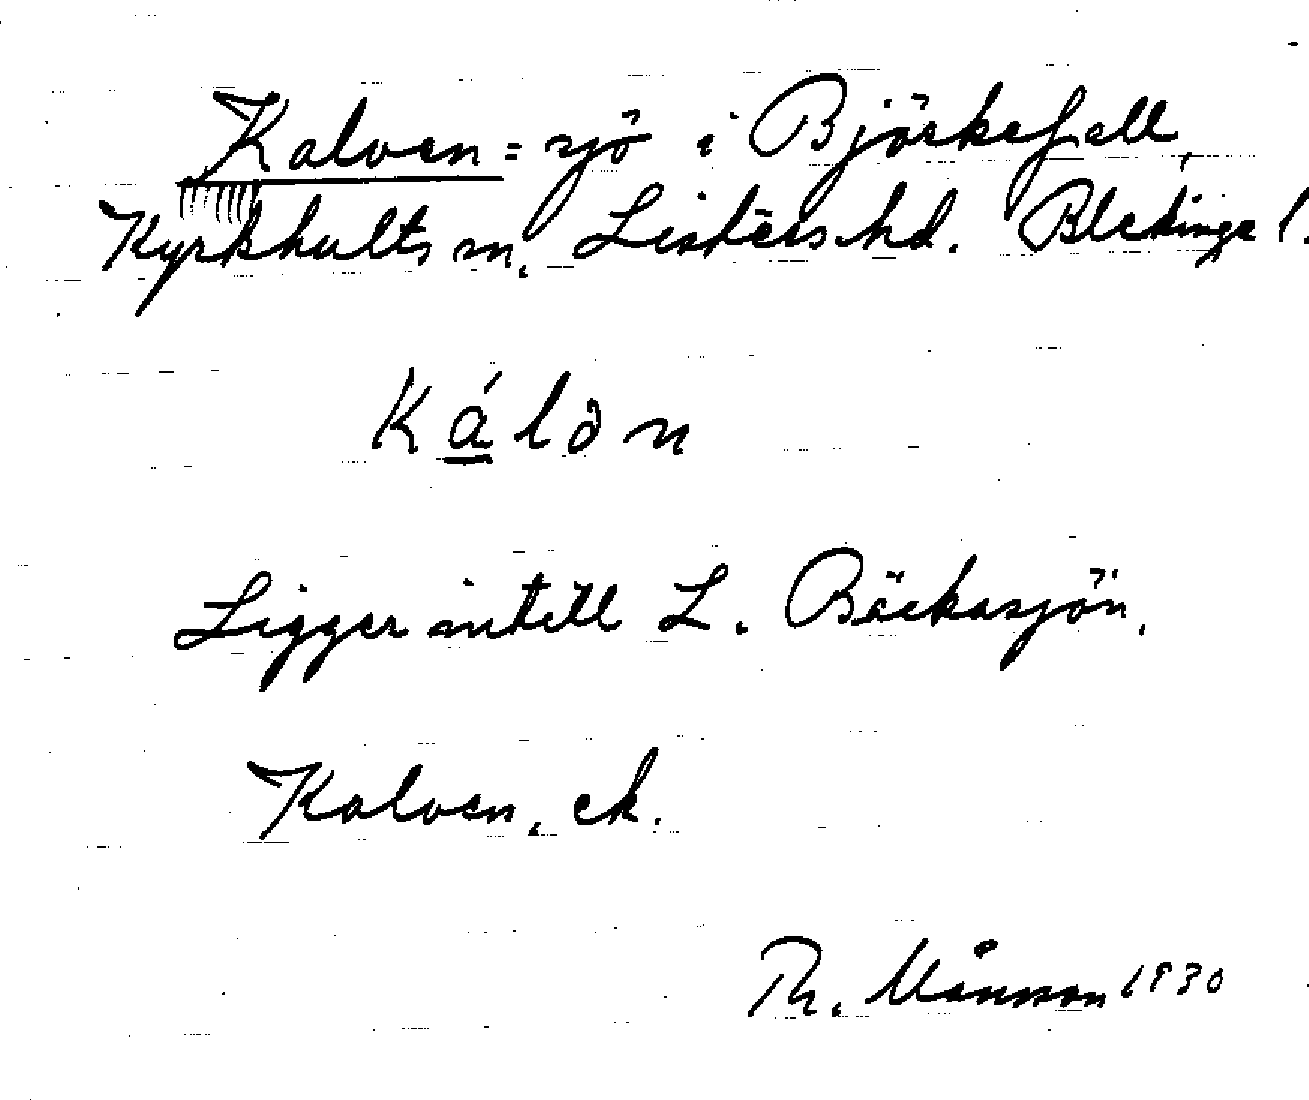 Kalven = sjö i Björkefall,
Kyrkhults sn. Listers hd. Blekinge l.
Kálən
Ligger intill L. Bäckasjön.
Kalven, ek.
Th. Månsson 1930